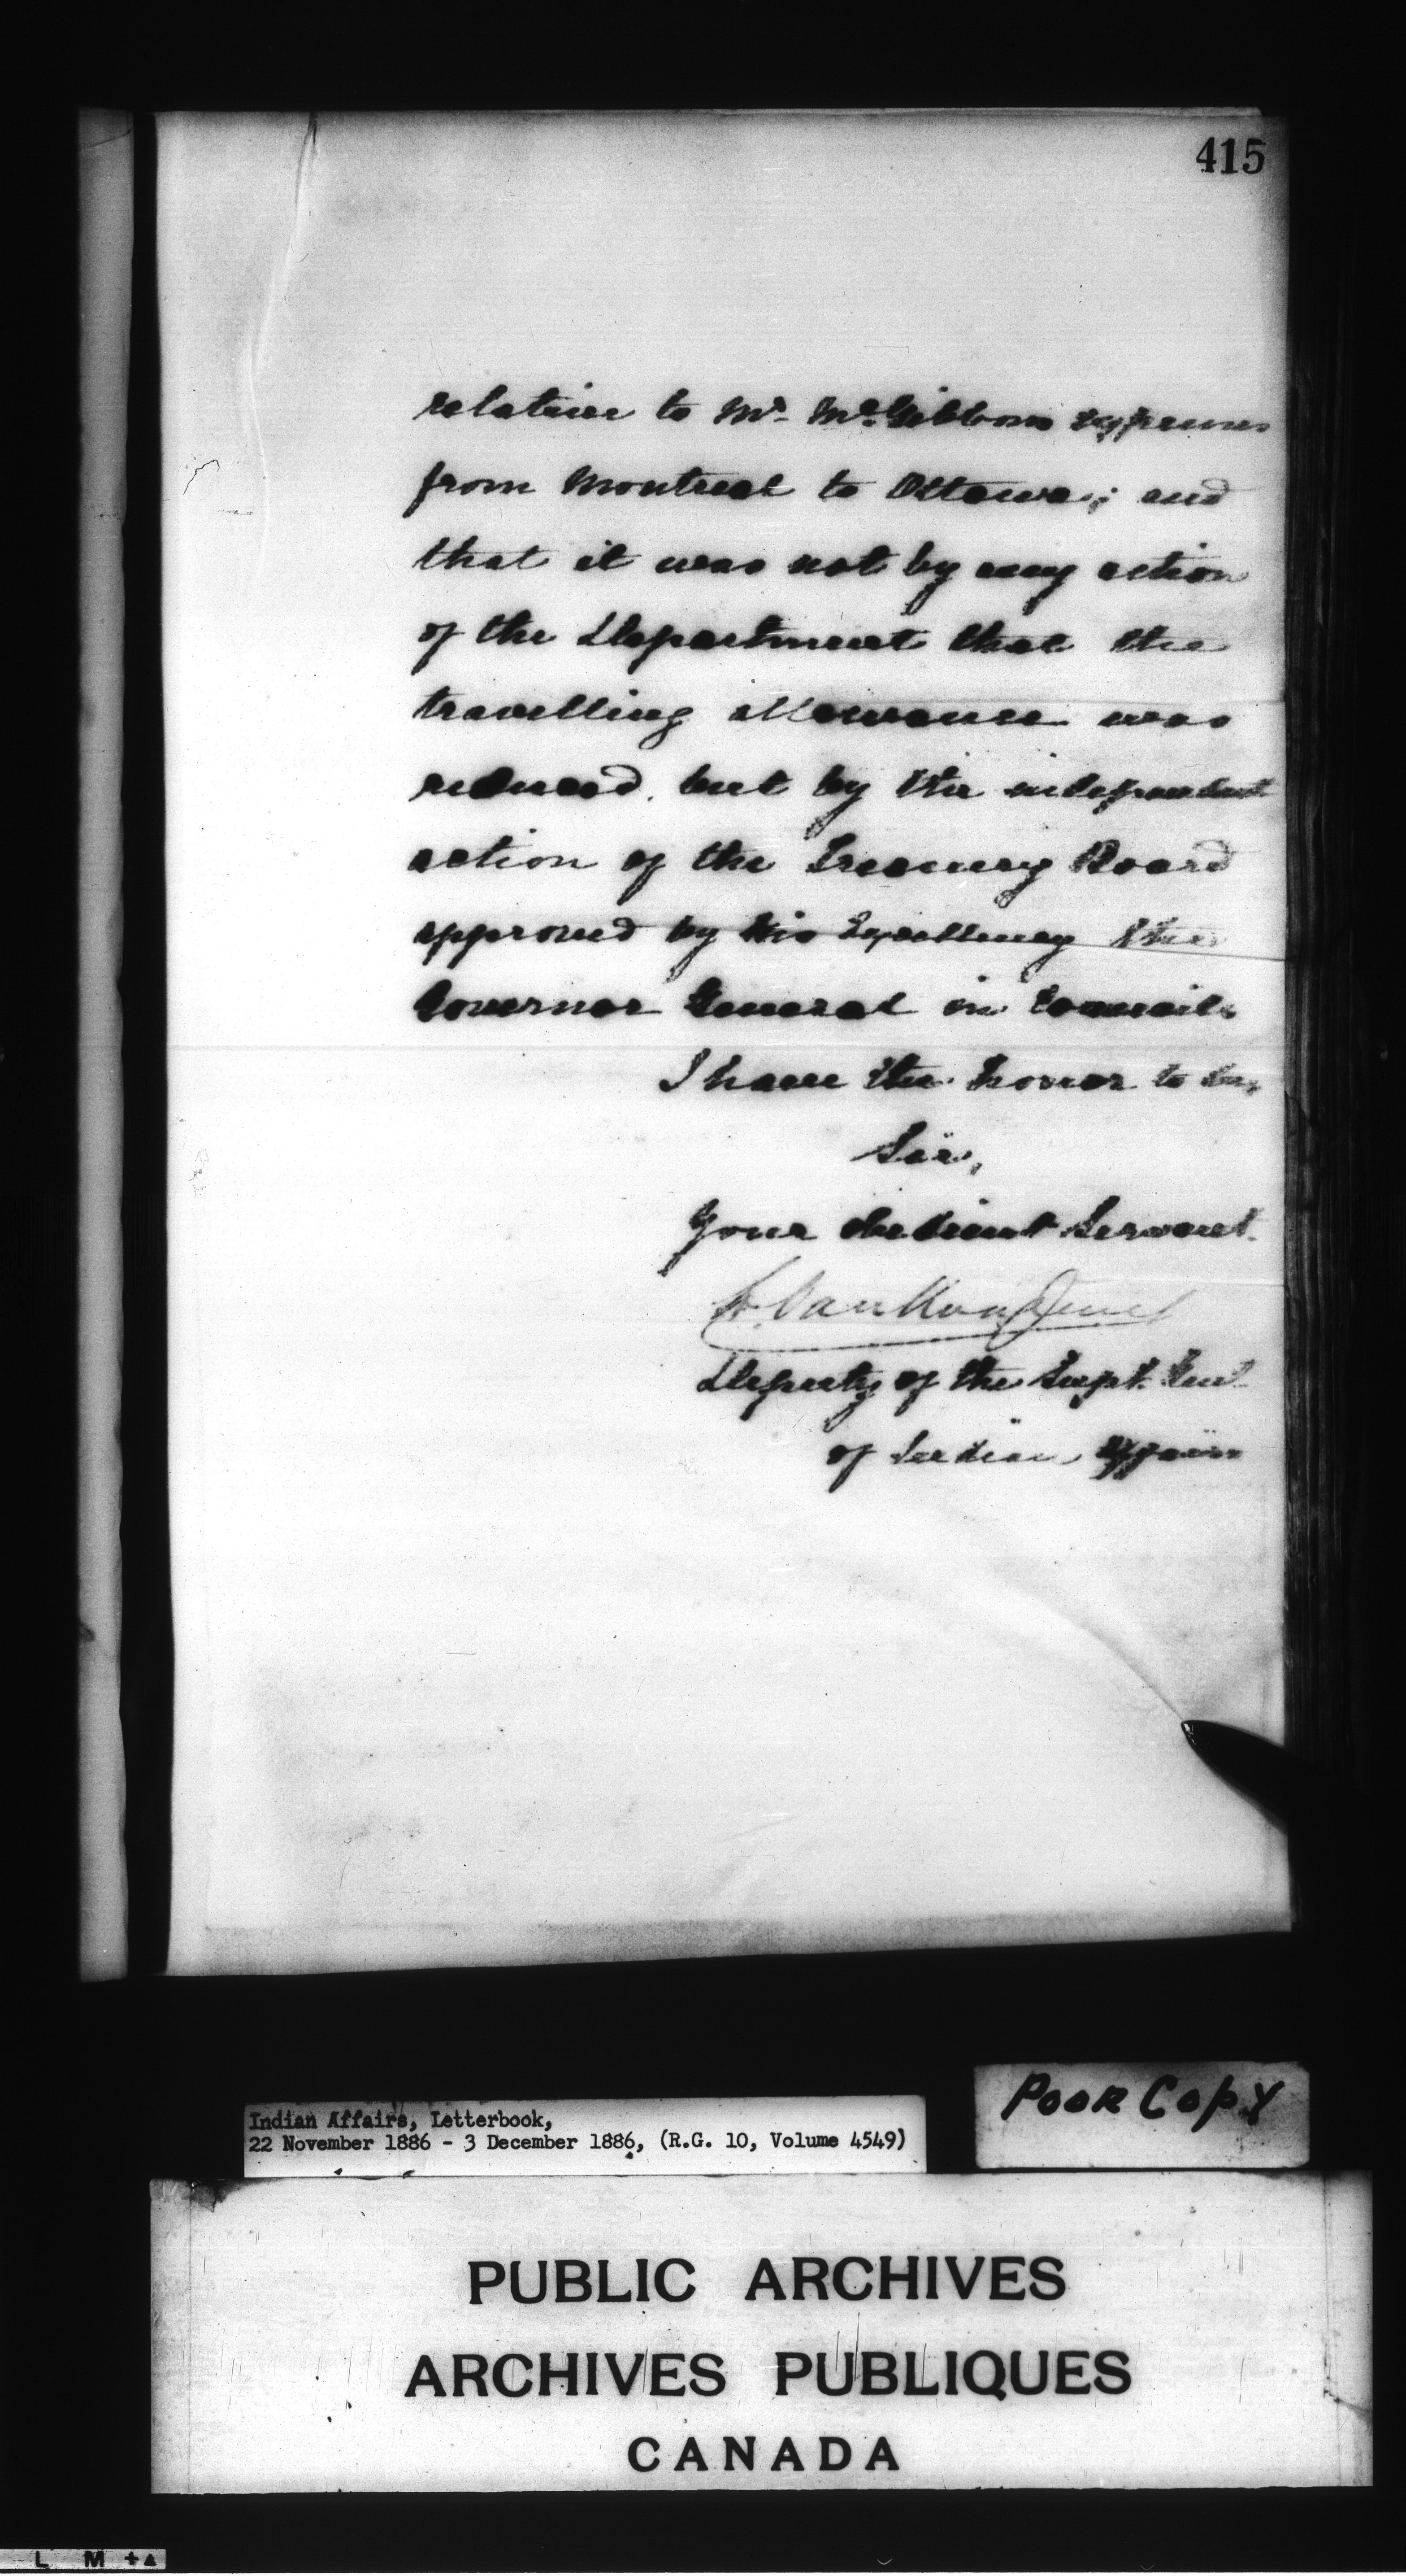 415
relative to Mr. McGibbons expenses
from Montreal to Ottawa; and
that it was not by any action
of the Department that the
travelling allowance was
reduced, but by the independent
action of the Treasury Board
approved by His Excellency the
Governor General in Council.
I have the honor to be,
Sir,
Your obedient Servant.
L. VanKoughnet
Deputy of the Supt. Genl.
of Indian Affairs
POOR COPY
Indian Affairs, Letterbook,
22 November 1886 - 3 December 1886, (R.G. 10, Volume 4549)
PUBLIC ARCHIVES
ARCHIVES PUBLIQUES
CANADA
L M +▲